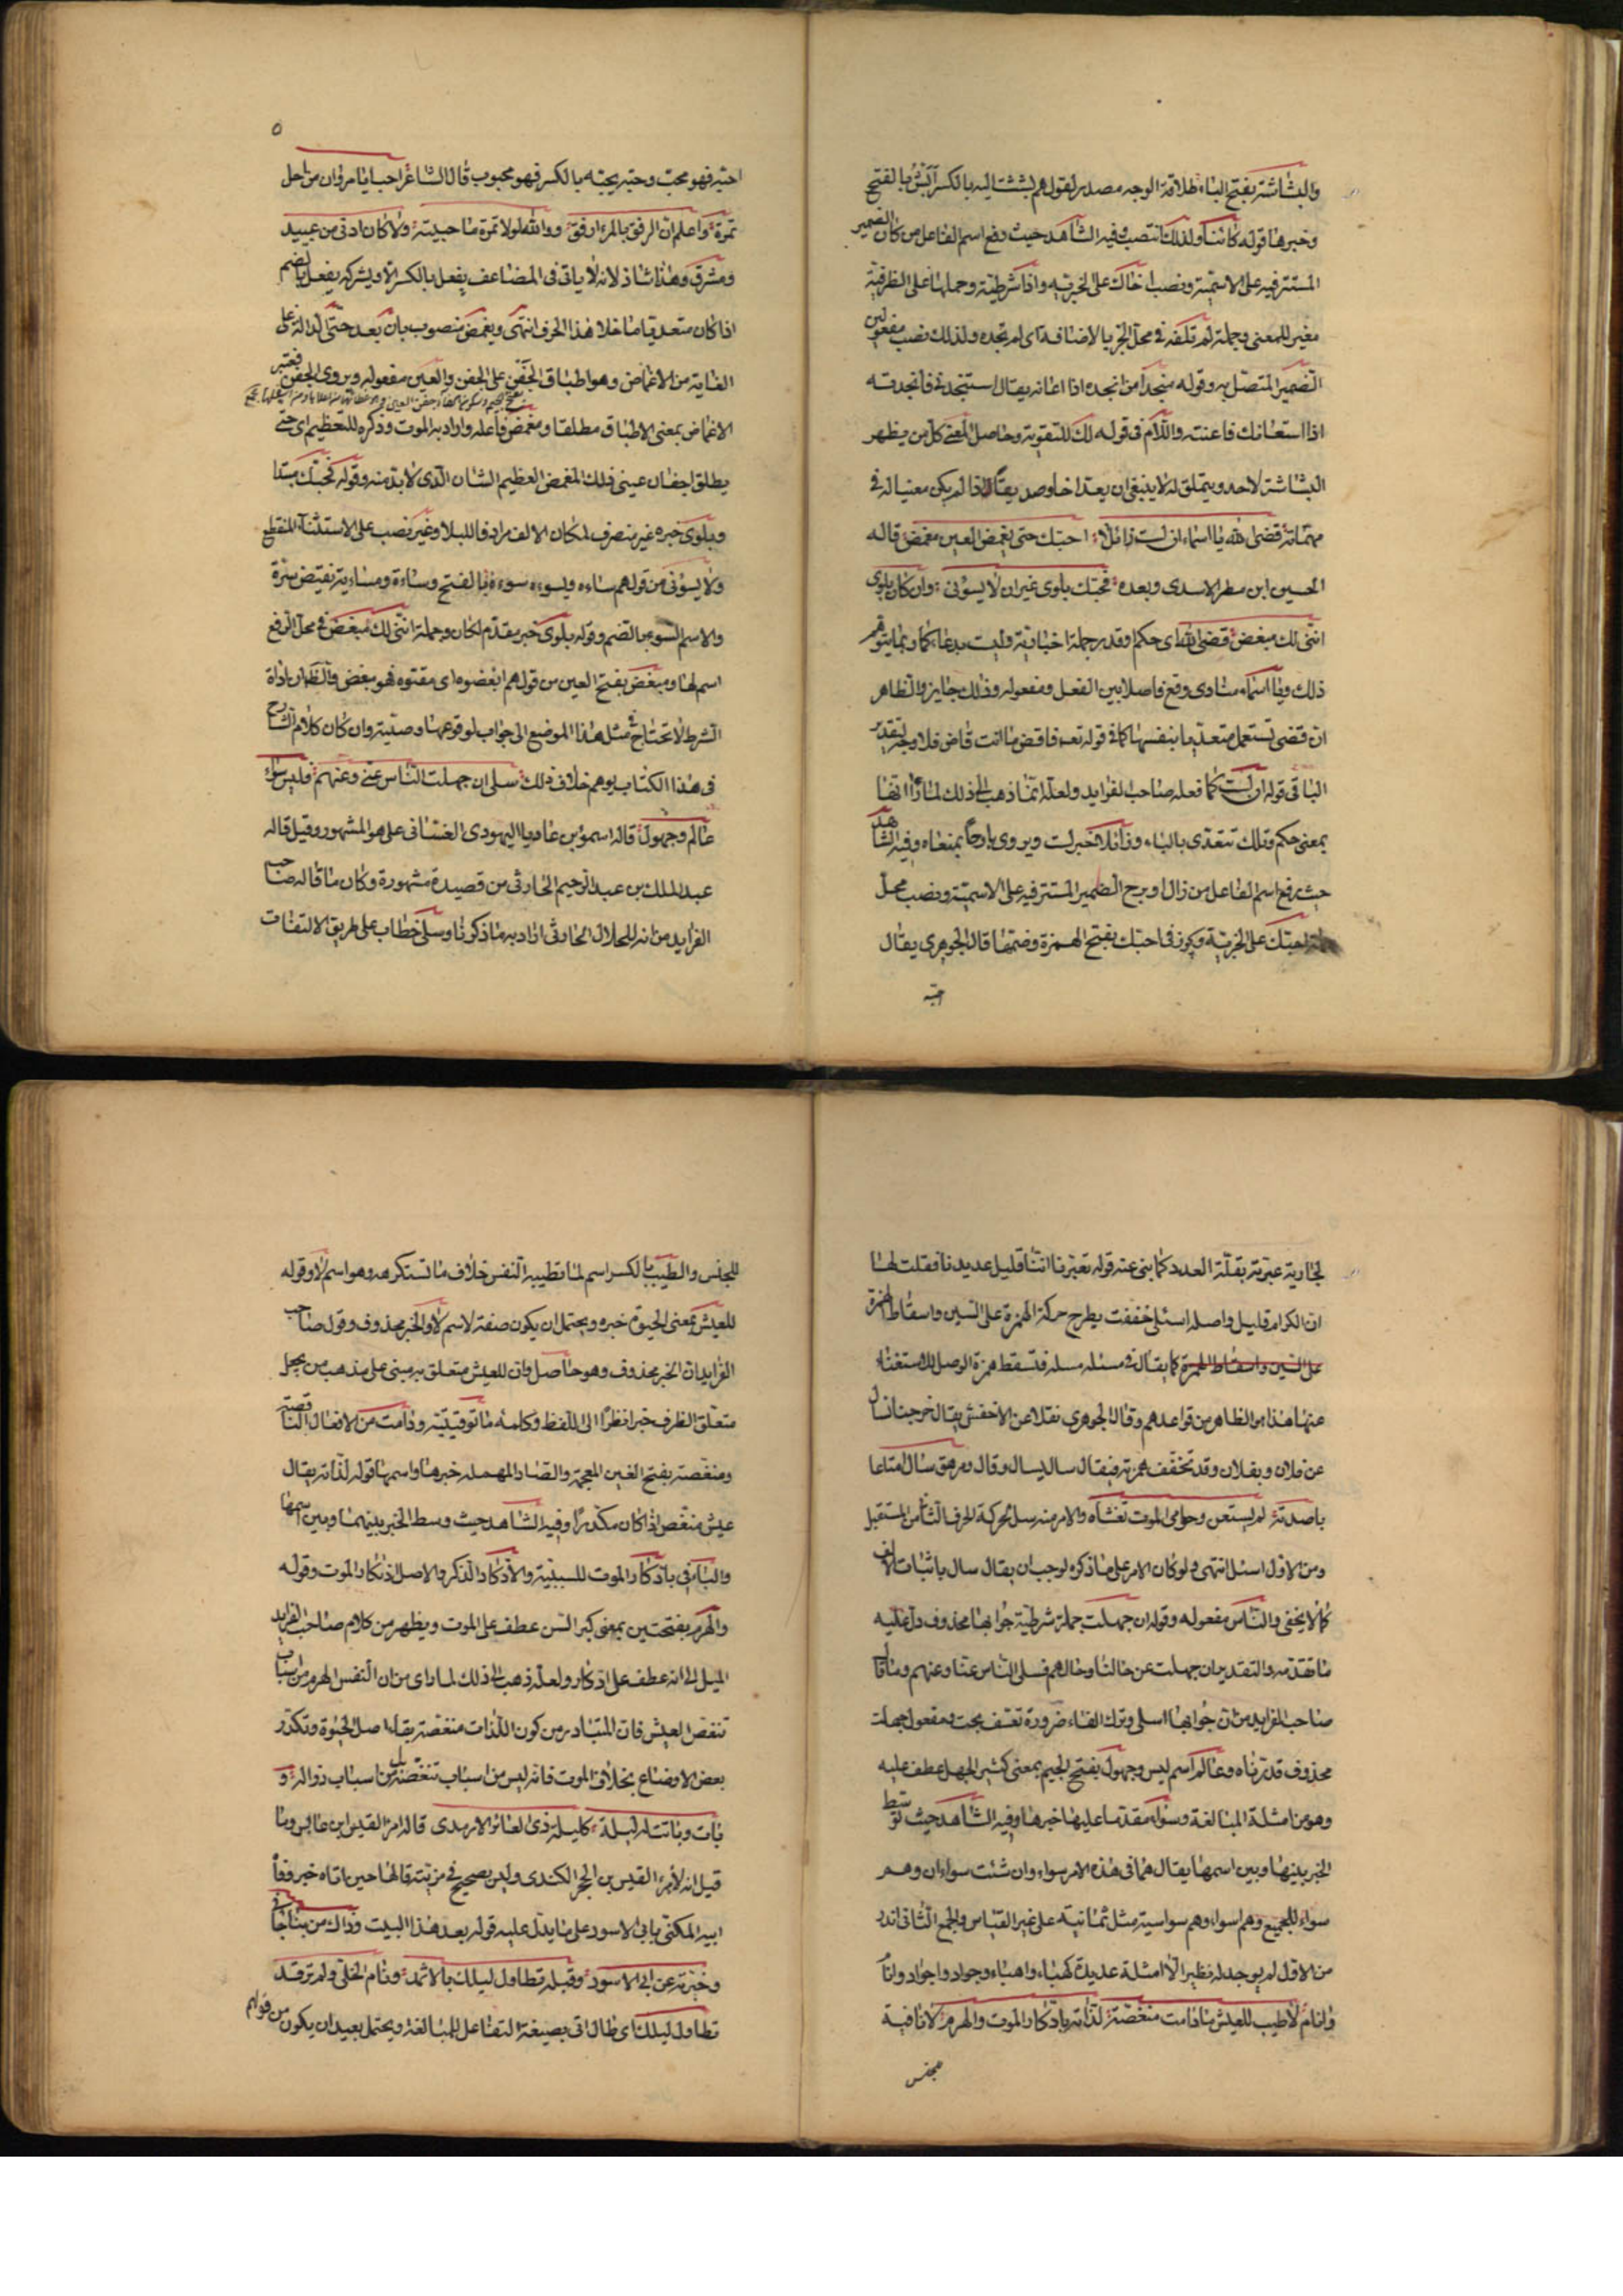 والبشاشة بفتح الباء طلاقة الوجه مصدر لقولهم بششت اليه بالكسر ابش بالفتح
وخبرها قوله كائنا ولذلك انتصب وفيه الشاهد حيث رفع اسم الفاعل من كان الضمير
المستتر فيه على الاسمية ونصب اخاك على الخبرية واذا شرطية وحملها على الظرفية
مغير للمعنى وجملة لم تلفه في محل الجر بالاضافة اى لم تجده ولذلك نصب مفعولين
الضمير المتصل به وقوله منجدا من انجده اذا اعانه يقال استنجدنى فانجدته
اذا استعانك فاعنته واللام فى قوله لك للتقوية وحاصل المعنى كل من يظهر
البشاشة لاحد ويتملق له لا ينبغى ان يعد اخا وصديقا اذا لم يكن معينا له فى
مهماته قضى الله يا اسماء ان لست زائلا احبك حتى يغمض العين مغمض قاله
الحسين ابن مطير الاسدى وبعده فحبك بلوى غير ان لا يسؤنى وان كان بلوى
اننى لك مبغض قضى الله اى حكم وقدر جملة اخبارية وليست بدعاء كما ربما يتوهم
ذلك ويا اسماء منادى وقع فاصلا بين الفعل ومفعوله وذلك جايز والظاهر
ان قضى تستعمل متعديا بنفسها كما فى قوله تعه فاقض ما انت قاض فلا وجه لتقدير
الباء فى قوله ان لست كما فعله صاحب الفرايد ولعله انما ذهب الى ذلك لما راٰ انها
بمعنى حكم وتلك تتعدى بالباء وزائلا خبر لست ويروى بارحا بمعناه وفيه الشاهد
حيث رفع اسم الفاعل من زال او برح الضمير المستتر فيه على الاسمية ونصب محل
جملة احبك على الخبرية ويجوز فى احبك بفتح الهمزة وضمها قال الجوهرى يقال
احبه
٥
احبه فهو محب وحبه يحبه بالكسر فهو محبوب قال الشاعر احب ابا مروان من اجل
تمرة واعلم ان الرفق بالمرء اوفق ووالله لولا تمره ما حببته ولا كان ادنى من عبيد
ومشرق وهذا شاذ لانه لا ياتى فى المضاعف يفعل بالكسر الا ويشركه يفعل بالضم
اذا كان متعديا ما خلا هذا الحرف انتهى ويغمض منصوب بان بعد حتى الدالة على
الغاية من الاغماض وهو اطباق الجفن على الجفن والعين مفعوله ويروى الجفن فيعتبر
الاغماض بمعنى الاطباق مطلقا ومغمض فاعله واراد به الموت وذكره للتعظيم اى حتى
يطلق اجفان عينى ذلك المغمض العظيم الشان الذى لا بد منه وقوله فحبك مبتدا
وبلوى خبره غير منصرف لمكان الالف مرادفا للبلا وغير نصب على الاستثناء المنقطع
ولا يسؤنى من قولهم ساءه ويسوءه سوءة بالفتح ومساءة ومساءية نقيض سره
والاسم السوء بالضم وقوله بلوى خبر مقدم لكان وجملة اننى لك مبغض فى محل الرفع
اسم لها ومبغض بفتح العين من قولهم ابغضوه اى مقتوه فهو مبغض والظهار ان اداة
الشرط لا تحتاج فى مثل هذا الموضع الى جواب لوقوعها وصلية وان كان كلام الشارح
فى هذا الكتاب يوهم خلاف ذلك سلى ان جهلت الناس عنى وعنهم فليس سواء
عالم وجهول قاله اسموٴل بن عاديا اليهودى الغسانى على هو المشهور وقيل قاله
عبد الملك بن عبد الرحيم الحارثى من قصيدة مشهورة وكان ما قاله صاحب
الفرايد من انه للجلال الحارثى اراد به ما ذكرنا وسلى خطاب على طريق الالتفات
لجارية عيرته بقلة العدد كما ينبئ عنه قوله تعيرنا انا قليل عديدنا فقلت لها
ان الكرام قليل واصله اسئلى خففت بطرح حركة الهمزة على السين واسقاط الهمزة
على السين واسقاط الهمزة كما يقال فى مسئلة مسلة فتسقط همزة الوصل للاستغناء
عنها هذا هو الظاهر من قواعدهم وقال الجوهرى نقلا عن الاخفش يقال خرجنا نسال
عن فلان وبفلان وقد تخفف همزته فيقال سال يسال وقال ومرهق سال امتاعا
باصدته لم يستعن وحوامى الموت تغشاه والامر منه سل بحركة الحرف الثانى من المستقبل
ومن الاول اسئل انتهى ولو كان الامر على ما ذكره لوجب ان يقال سال باثبات الالف
كما لا يخفى والناس مفعوله وقوله ان جهلت جملة شرطية جوابها محذوف دل عليه
ما تقدمه والتقدير ان جهلت عن حالنا وحالهم فسلى الناس عنا وعنهم وما قال
صاحب الفرايد من ان جوابها اسلى وترك الفاء ضرورة تعسف بحت ومفعول جهلت
محذوف قدرناه وعالم اسم ليس وجهول بفتح الجيم بمعنى كثير الجهل عطف عليه
وهو من امثلة المبالغة وسواء مقدما عليها خبرها وفيه الشاهد حيث توسط
الخبر بينها وبين اسمها يقال هما فى هذه الامر سواء وان شئت سواءان وهم
سواء للجميع وهم اسواء وهم سواسية مثل ثمانية على غير القياس والجمع الثانى اندر
من الاول لم يوجد له نظير الا امثلة عديدة كهباء واهباء وجواد واجواد وانا
وانام لا طيب للعيش ما دامت منغصة لذاته بادكار الموت والهرم لا نافية
للجنس
للجنس والطيب بالكسر اسم لما تطيبه النفس خلاف ما تستكرهه وهو اسم لا وقوله
للعيش بمعنى الحيوة خبره ويحتمل ان يكون صفة لاسم لا والخبر محذوف وقول صاحب
الفرايد ان الخبر محذوف وهو حاصل وان للعيش متعلق به مبنى على مذهب من يجعل
متعلق الظرف خبرا نظرا الى اللفظ وكلمة ما توقيتية ودامت من الافعال الناقصة
ومنغصة بفتح الغين المعجمة والصاد المهملة خبرها واسمها قوله لذاته يقال
عيش منغص اذا كان مكدرا وفيه الشاهد حيث وسط الخبر بينهما وبين اسمها
والباء فى بادكار الموت للسببية والادكار الذكر والاصل اذتكار الموت وقوله
والهرم بفتحتين بمعنى كبر السن عطف على الموت ويظهر من كلام صاحب الفرايد
الميل الى انه عطف على ادكار ولعله ذهب الى ذلك لما راى من ان النفس الهرم من اسباب
تنغص العيش فان المتبادر من كون اللذات منغصة بقاء اصل الحيوة وتكدر
بعض الاوضاع بخلاف الموت فانه ليس من اسباب تنغصه بل من اسباب زواله و
بات وباتت له ليلة كليلة ذى العائر الارمد قاله امرء القيس ابن عابس وما
قيل انه لامرء القيس بن الحجر الكندى وليس بصحيح فى مرثية قالها حين اتاه خبر وفاة
ابيه المكنى بابى الاسود على ما يدل عليه قوله بعد هذا البيت وذاك من بناء جانى
وخبرته عن ابى الاسود وقبله تطاول ليلك بالاثمد ونام الخلى ولم ترقد
تطاول ليلك اى طال اتى بصيغة التفاعل للمبالغة ويحتمل بعيد ان يكون من قولهم